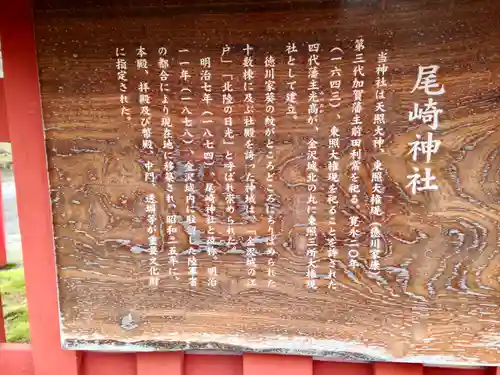 尾崎神社
当神社は天照大神、東照大権現(徳川家康)
第三代加賀藩主前田利常を祀る。寛永二〇年
(一六四三)、東照大権現を祀ることを許された
四代藩主光高が、金沢城北の丸に東照三所大権現
社として建立。
徳川家葵の紋がところどころにちりばめられた
十数棟に及ぶ社殿を誇った神域は、「金沢城の江
戸」「北陸の日光」と呼ばれ崇められた。
明治七年(一八七四)、尾崎神社と改称、明治
一一年(一八七八)、金沢城内に駐屯した陸軍省
の都合により現在地に移築された。昭和二五年に、
本殿、拝殿及び幣殿、中門、透塀等が重要文化財
に指定された。